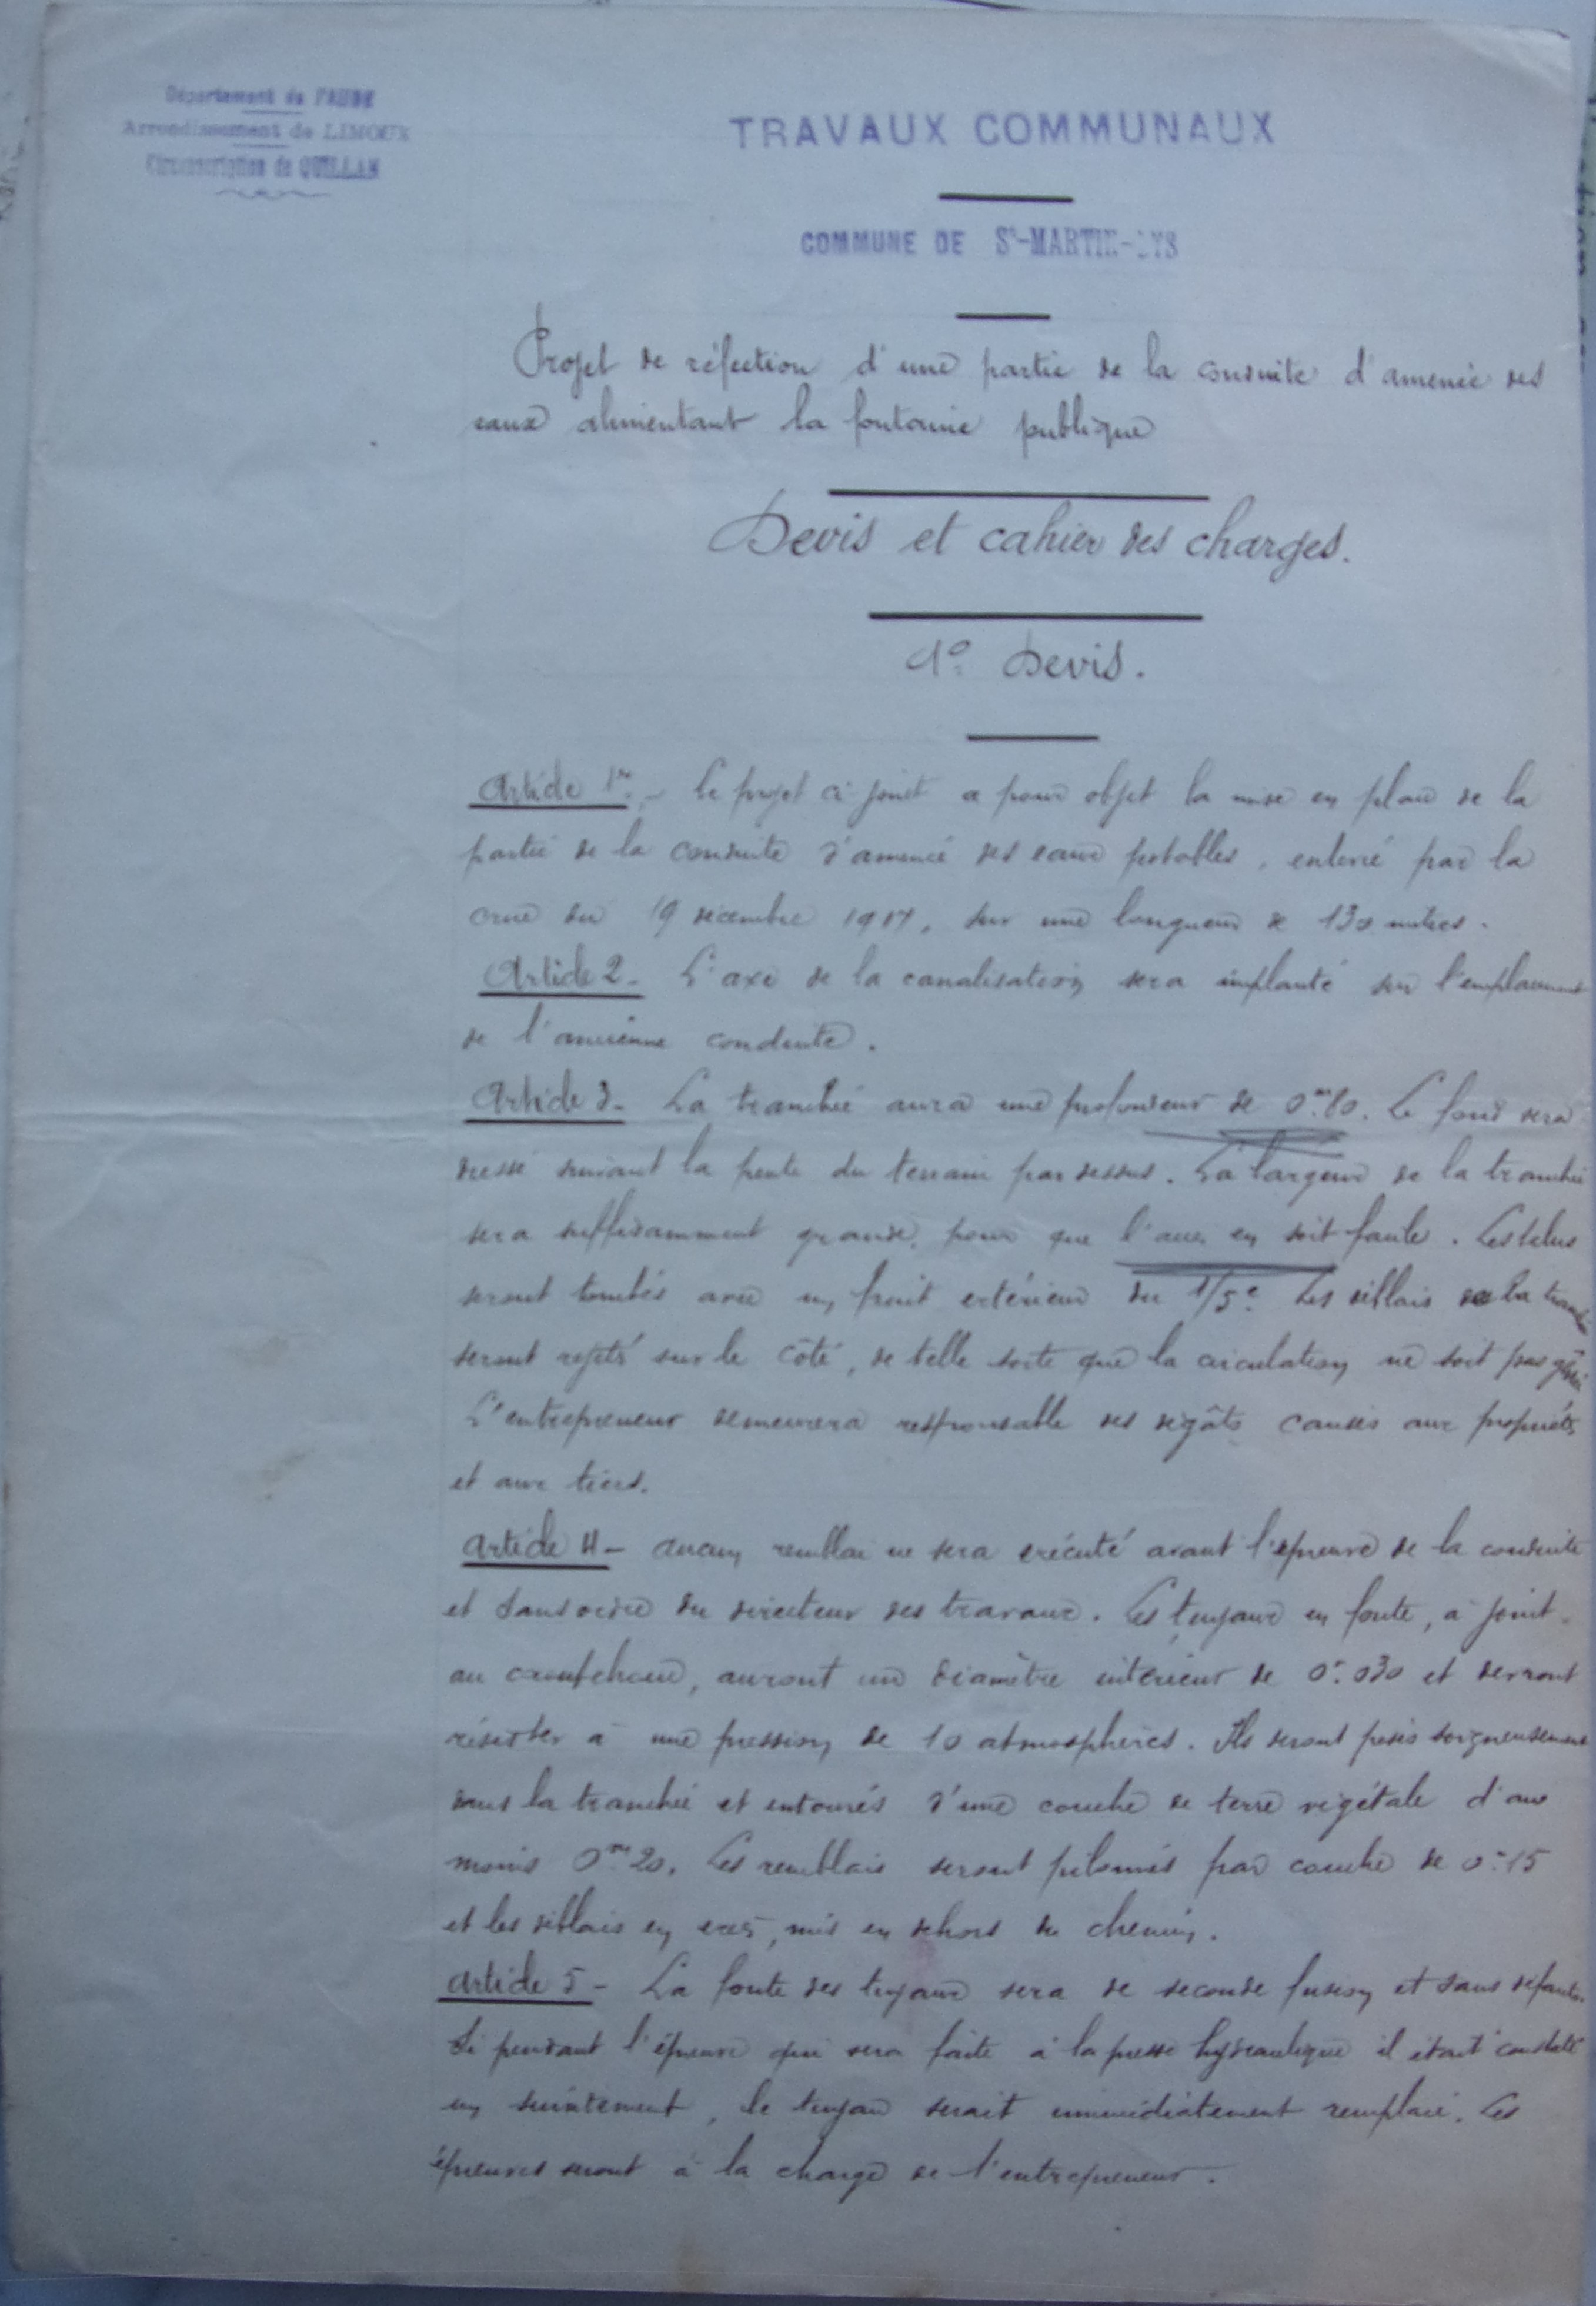 Département de l'AUDE
Arrondissement de LIMOUX
Circonscription de QUILLAN
TRAVAUX COMMUNAUX
COMMUNE DE St-MARTIN-LYS
Projet de réfection d'une partie de la conduite d'amenée des
eaux alimentant la fontaine publique
Devis et cahier des charges.
1° Devis.
Article 1er. - Le projet ci-joint a pour objet la mise en place de la
partie de la conduite d'amenée des eaux potables, enlevée par la
crue du 19 décembre, sur une longueur de 130 mètres.
Article 2 - L'axe de la canalisation sera implanté sur l'emplacement
de l'ancienne conduite.
Article 3 - La tranchée aura une profondeur de 0m80. Le fond sera
dressé suivant la pente du terrain par dessus. La largeur de la tranchée
sera suffisamment grande, pour que l'accès en soit facile. Les talus
seront tombés avec un fruit extérieur du 1/5e. Les déblais de la tranchée
seront rejetés sur le côté, de telle sorte que la circulation ne soit pas gênée
L'entrepreneur demeurera responsable des dégâts causés aux propriétés
et aux tiers.
Article 4 - aucun remblai ne sera exécuté avant l'épreuve de la conduite
et sans ordre du directeur des travaux. Les tuyaux en fonte, à joint
au caoutchouc, auront un diamètre intérieur de 0m.030 et devront
résister à une pression de 10 atmosphères. Ils seront posés soigneusement
dans la tranchée et entourés d'une couche de terre végétale d'au
moins 0m20. Les remblais seront pilonnés par couche de 0m15
et les déblais en excès, mis en dehors du chemin.
Article 5 - La fonte des tuyaux sera de seconde fusion et sans défauts.
Si pendant l'épreuve qui sera faite à la presse hydraulique il était constaté
un suintement, le tuyau serait immédiatement remplacé. Les
épreuves seront à la charge de l'entrepreneur.